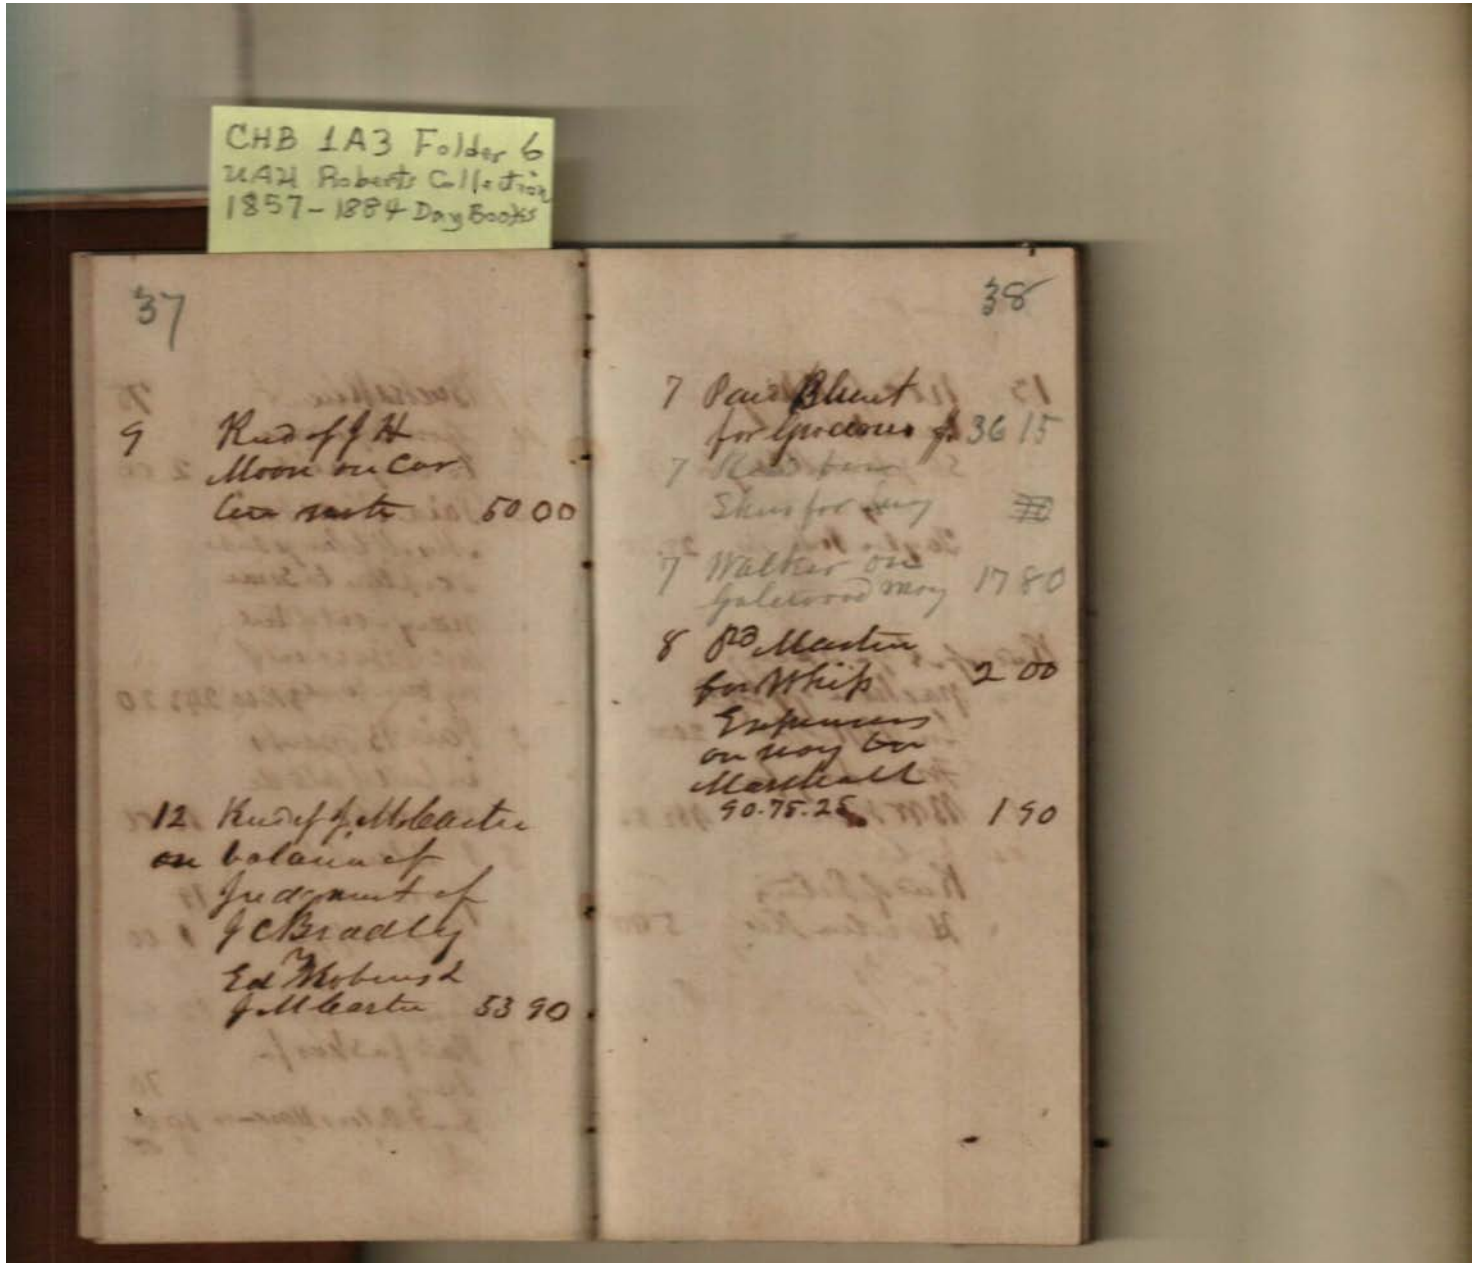 CHB 1A3 Folder 6
UAH Roberts Collection
1857-1884 Day Books
37
9 Recd of J H
Moon on Car
5000
12 Recd of J. McCarter
on balance of
Judgment of
J C Bradley
Ed
J M Carter 53 90
38
7 Paid Blunt
for Groceries 36 15
7 Paid
for
7 Walker on
Gatewood 17 80
8 Pd Martin
for Whip 2 00
Expenses
on way
Marshall
90.75.25 1 90